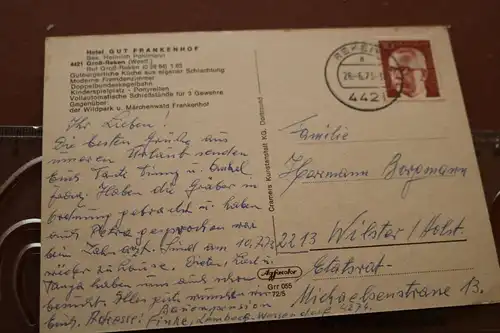 Hotel GUT FRANKENHOF
Bes. Heinrich Pohlmann
4421 Groß-Reken (Westf.)
Ruf Groß-Reken (0 28 64) 1 85
Gutbürgerliche Küche aus eigener Schlachtung
Moderne Fremdenzimmer
Doppelbundeskegelbahn
Kinderspielplatz - Ponyreiten
Vollautomatische Schießstände für 3 Gewehre
Gegenüber:
der Wildpark u. Märchenwald Frankenhof
Ihr Lieben!
Die besten Grüße aus
unserem Urlaub senden
Euch Tante und Onkel
Haben die Gräber in
Ordnung gebracht u. haben
auch Petra gesprochen war
beim Zahnarzt. Sind am 10.7.
wieder zu Hause. Dieter, und
Tanja haben uns auch schon
besucht. Alles gute wünschen wir
Euch. Adresse: Pension
Finke, Lembeck-Wessendorf 4274
Cramers Kunstanstalt KG, Dortmund
REKEN
a
26.-6.73
4421
Familie
Herrmann Borgmann
2213 Wilster/Holst
Etatsrat-
Michaelsenstrasse 13.
Grr 055
72/5